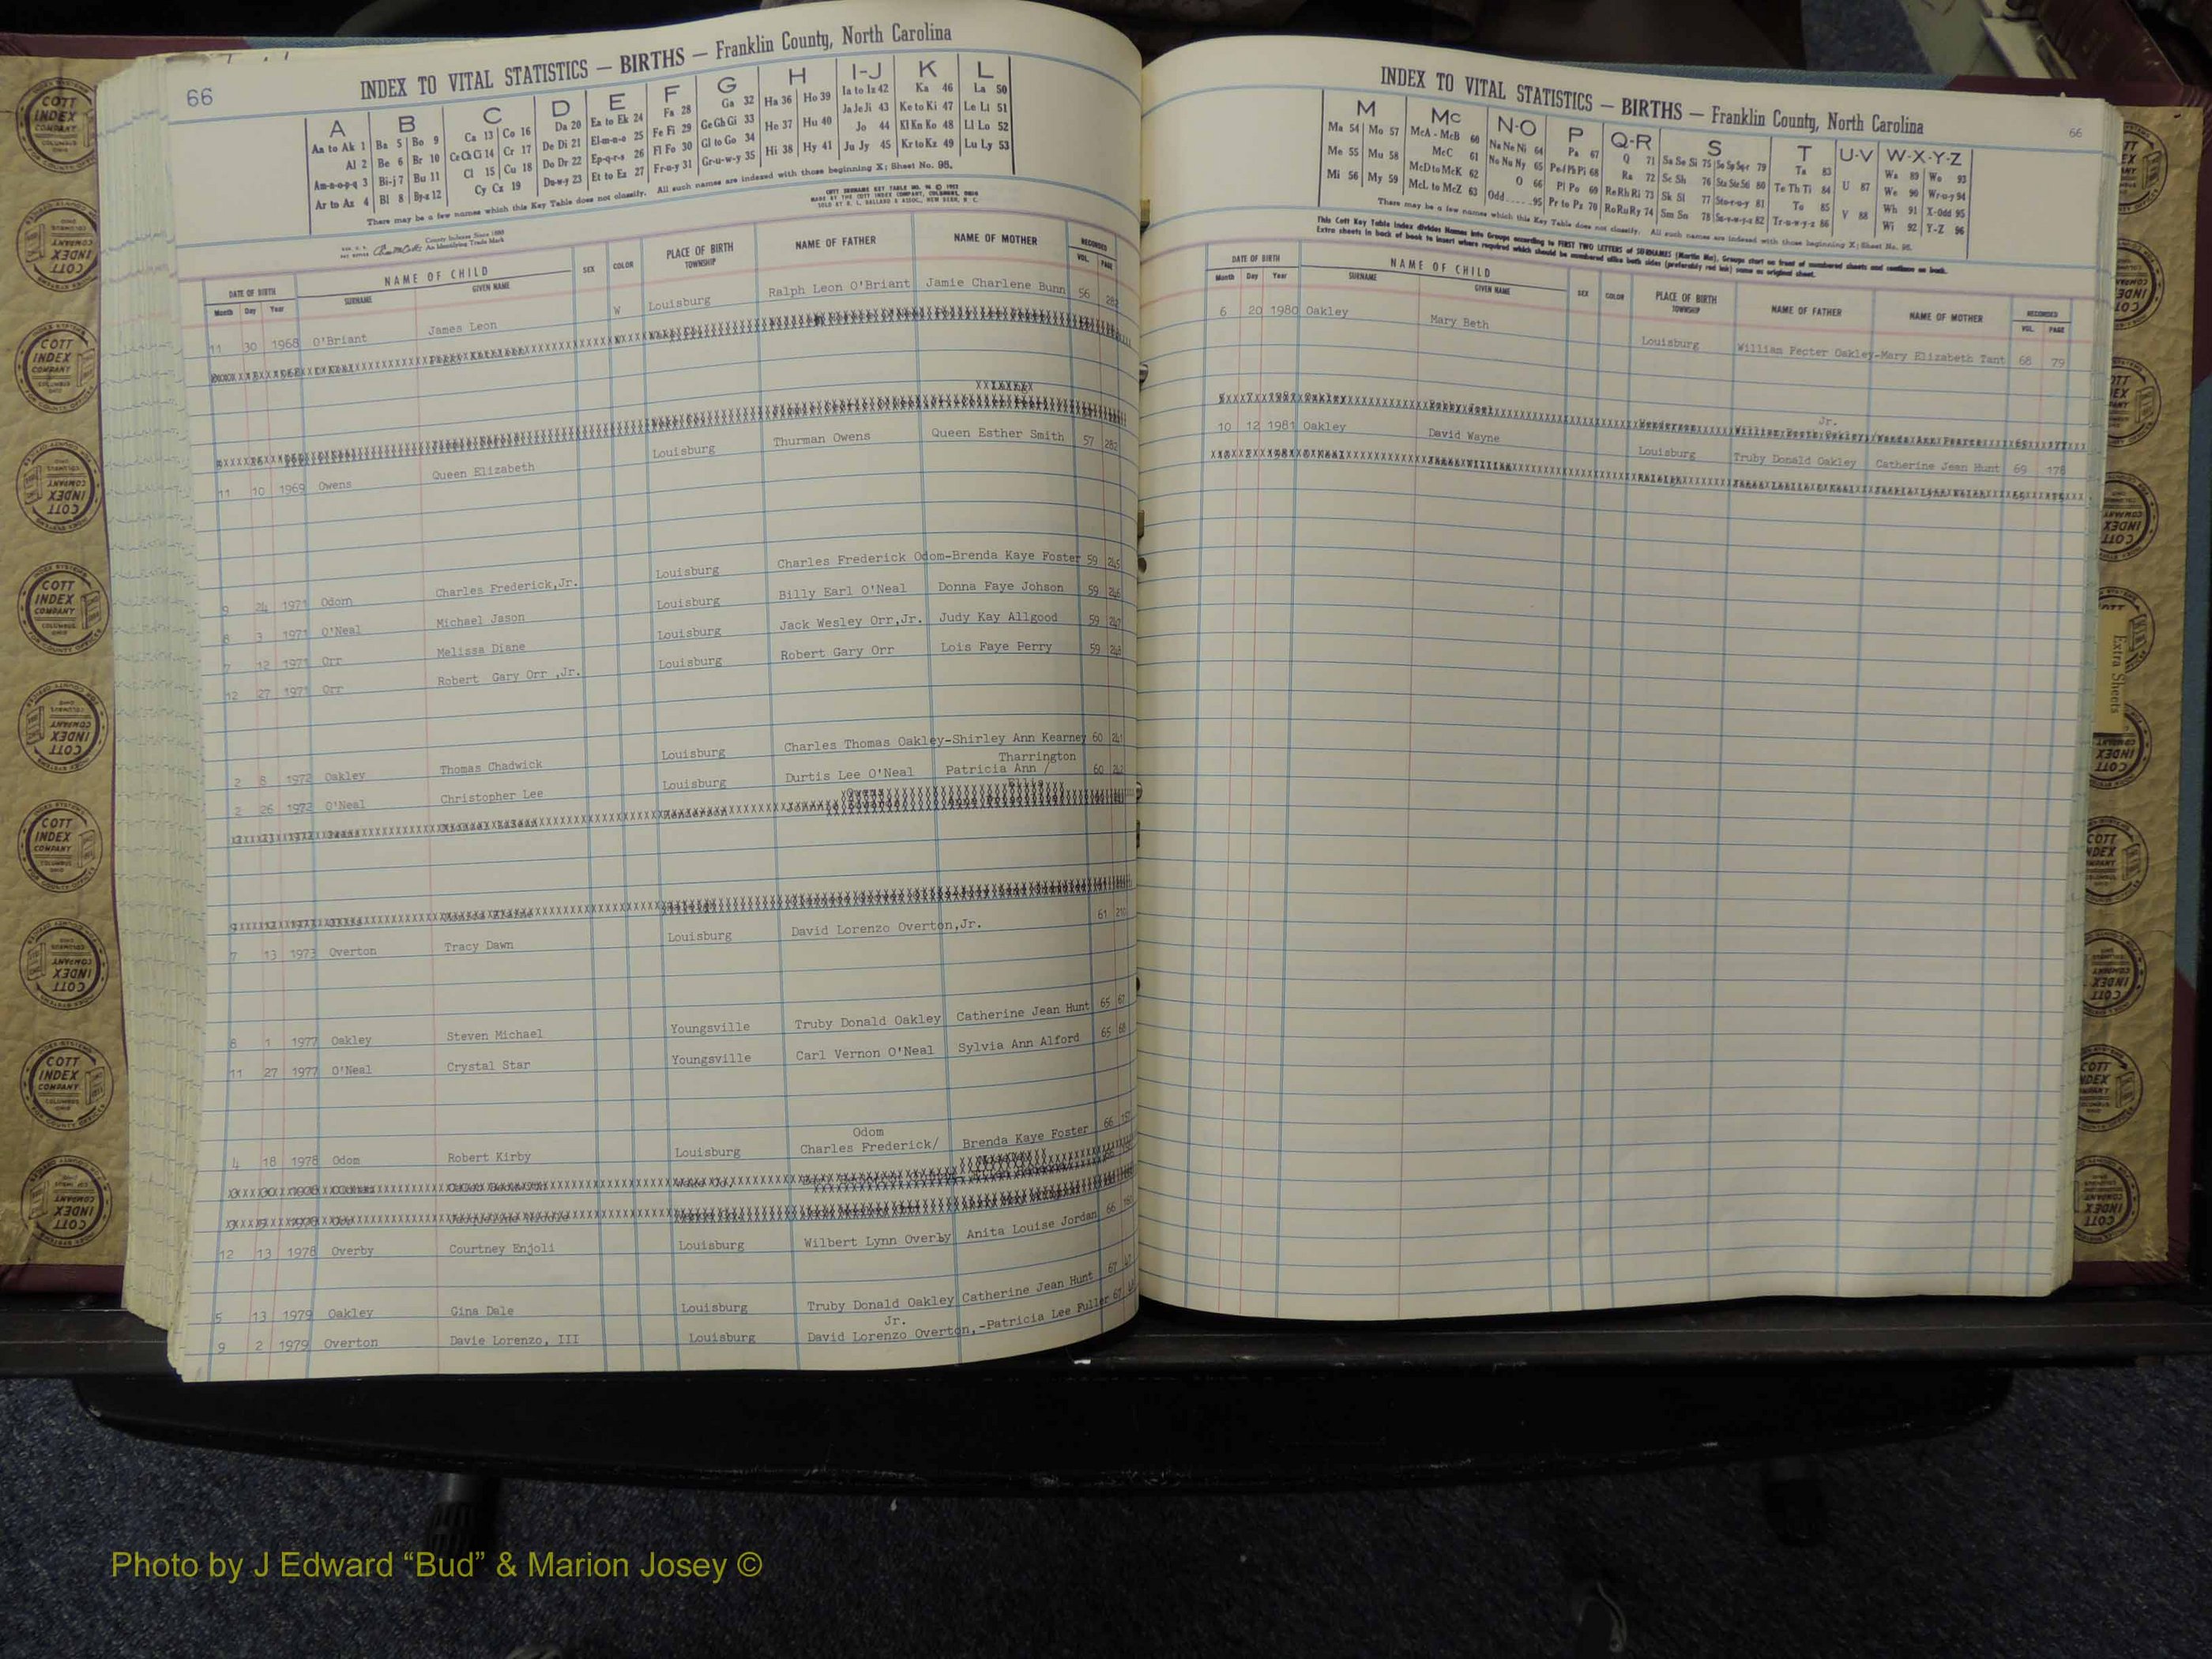 66
INDEX TO VITAL STATISTICS — BIRTHS — Franklin County, North Carolina
A B C D E F G H I-J K L
Aa to Ak 1 Ba 5 Bo 9 Ca 13 Co 16 Da 20 Ea to Ek 24 Fa 28 Ga 32 Ha 36 Ho 39 Ia to Iz 42 Ka 46 La 50
Al 2 Be 6 Br 10 Ce Ch Ci 14 Cr 17 De Di 21 El-m-n-o 25 Fe Fi 29 Ge Gh Gi 33 He 37 Hu 40 Ja Je Ji 43 Ke to Ki 47 Le Li 51
Am-n-o-p-q 3 Bi-j 7 Bu 11 Cl 15 Cu 18 Do Dr 22 Ep-q-r-s 26 Fl Fo 30 Gl to Go 34 Hi 38 Hy 41 Jo 44 Kl Kn Ko 48 Ll Lo 52
Ar to Az 4 Bl 8 By-z 12 Cy Cz 19 Du-w-y 23 Et to Ez 27 Fr-u-y 31 Gr-u-w-y 35 Ju Jy 45 Kr to Kz 49 Lu Ly 53
There may be a few names which this Key Table does not classify. All such names are indexed with those beginning X; Sheet No. 95.
County Indexes Since 1888
An Identifying Trade Mark
DATE OF BIRTH NAME OF CHILD SEX COLOR PLACE OF BIRTH NAME OF FATHER NAME OF MOTHER RECORDED
Month Day Year SURNAME GIVEN NAME TOWNSHIP VOL. PAGE
11 30 1968 O'Briant James Leon W Louisburg Ralph Leon O'Briant Jamie Charlene Bunn 56 282
11 10 1969 Owens Queen Elizabeth Louisburg Thurman Owens Queen Esther Smith 57 282
9 24 1971 Odom Charles Frederick,Jr. Louisburg Charles Frederick Odom-Brenda Kaye Foster 59 245
8 3 1971 O'Neal Michael Jason Louisburg Billy Earl O'Neal Donna Faye Johson 59 246
7 12 1971 Orr Melissa Diane Louisburg Jack Wesley Orr,Jr. Judy Kay Allgood 59 247
12 27 1971 Orr Robert Gary Orr ,Jr. Louisburg Robert Gary Orr Lois Faye Perry 59 248
2 8 1972 Oakley Thomas Chadwick Louisburg Charles Thomas Oakley-Shirley Ann Kearney 60 241
Tharrington
2 26 1972 O'Neal Christopher Lee Louisburg Durtis Lee O'Neal Patricia Ann / 60 242
7 13 1973 Overton Tracy Dawn Louisburg David Lorenzo Overton,Jr. 61 210
6 1 1977 Oakley Steven Michael Youngsville Truby Donald Oakley Catherine Jean Hunt 65 67
11 27 1977 O'Neal Crystal Star Youngsville Carl Vernon O'Neal Sylvia Ann Alford 65 68
Odom
4 18 1978 Odom Robert Kirby Louisburg Charles Frederick/ Brenda Kaye Foster 66
12 13 1978 Overby Courtney Enjoli Louisburg Wilbert Lynn Overby Anita Louise Jordan 66
5 13 1979 Oakley Gina Dale Louisburg Truby Donald Oakley Catherine Jean Hunt 67
Jr.
9 2 1979 Overton Davie Lorenzo, III Louisburg David Lorenzo Overton,-Patricia Lee Fuller 67
INDEX TO VITAL STATISTICS — BIRTHS — Franklin County, North Carolina
66
M Mc N-O P Q-R S T U-V W-X-Y-Z
Ma 54 Mo 57 McA - McB 60 Na Ne Ni 64 Pa 67 Q 71 Sa Se Si 75 So Sp Sq-r 79 Ta 83 U 87 Wa 89 Wo 93
Me 55 Mu 58 McC 61 No Nu Ny 65 Pe-f Ph Pi 68 Ra 72 Sc Sh 76 Sta Ste Sti 80 Te Th Ti 84 V 88 We 90 Wr-u-y 94
Mi 56 My 59 McD to McK 62 O 66 Pl Po 69 Re Rh Ri 73 Sk Sl 77 Sto-r-u-y 81 To 85 Wh 91 X-Odd 95
McL to McZ 63 Odd 95 Pr to Pz 70 Ro Ru Ry 74 Sm Sn 78 Su-v-w-y-z 82 Tr-u-w-y-z 86 Wi 92 Y-Z 96
There may be a few names which this Key Table does not classify. All such names are indexed with those beginning X; Sheet No. 95.
This Cott Key Table Index divides Names into Groups according to FIRST TWO LETTERS of SURNAMES (Martin Ma). Groups start on front of numbered sheets and continue on back.
Extra sheets in back of book to insert where required which should be numbered alike both sides (preferably red ink) same as original sheet.
DATE OF BIRTH NAME OF CHILD SEX COLOR PLACE OF BIRTH NAME OF FATHER NAME OF MOTHER RECORDED
Month Day Year SURNAME GIVEN NAME TOWNSHIP VOL. PAGE
6 20 1980 Oakley Mary Beth Louisburg William Fecter Oakley-Mary Elizabeth Tant 68 79
Jr.
10 12 1981 Oakley David Wayne Louisburg Truby Donald Oakley Catherine Jean Hunt 69 178
Extra Sheets
COTT INDEX COMPANY COLUMBUS OHIO
Photo by J Edward “Bud” & Marion Josey ©